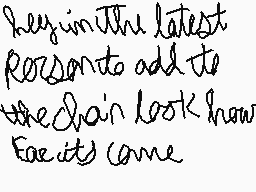 hey im the latest
person to add to
the chain look how
far its come